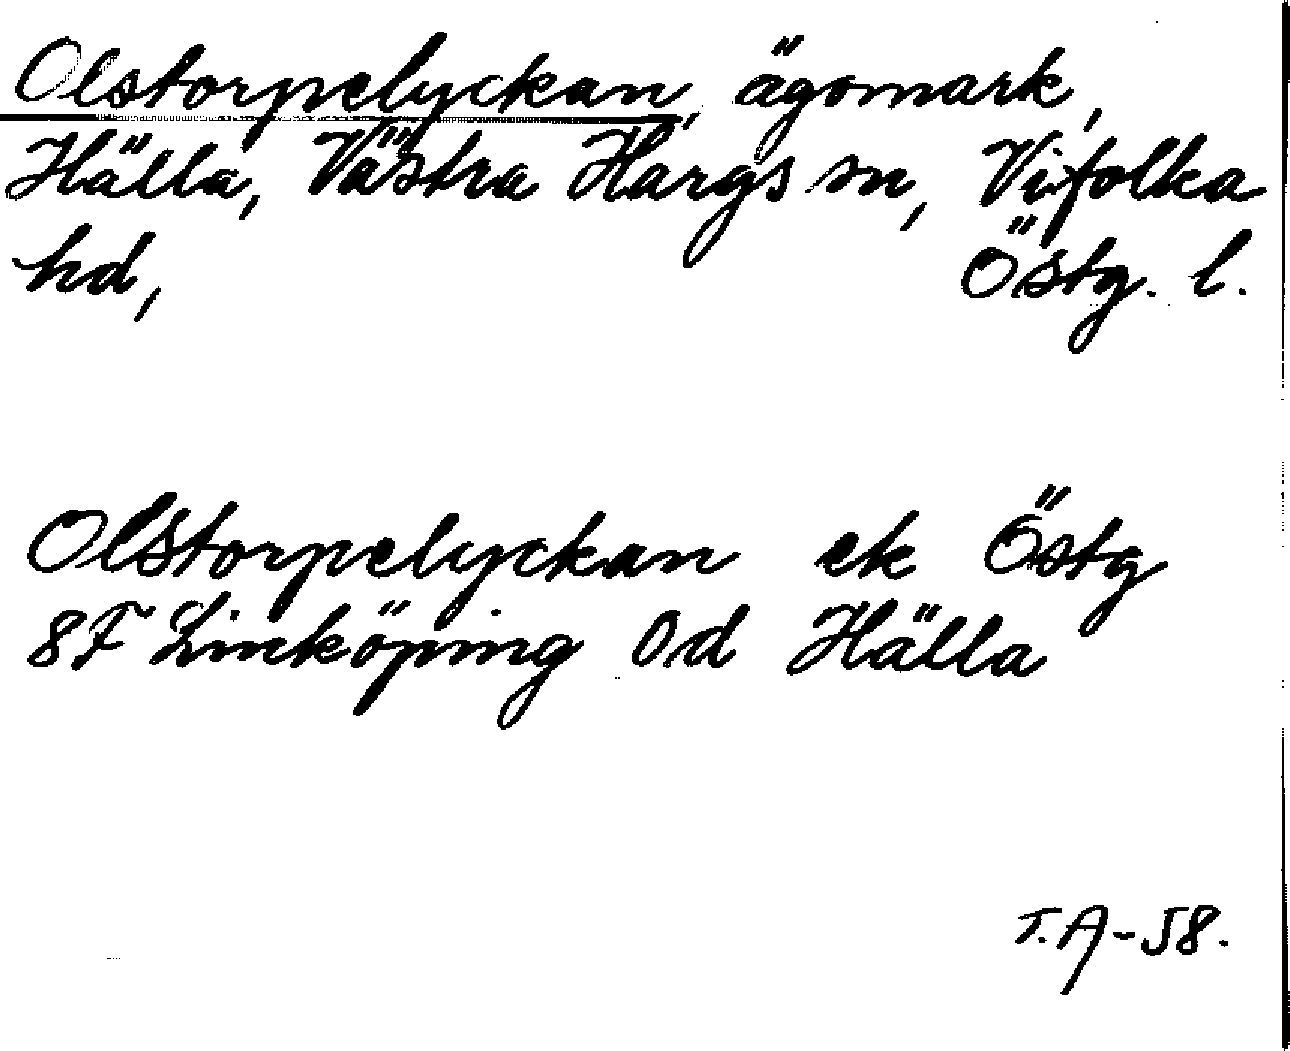 Olstorpelyckan, ägomark,
Hälla, Västra Hargs sn, Vifolka
hd, Östg. l.
Olstorpelyckan ek Östg
8F Linköping 0d Hälla
T.A-58.